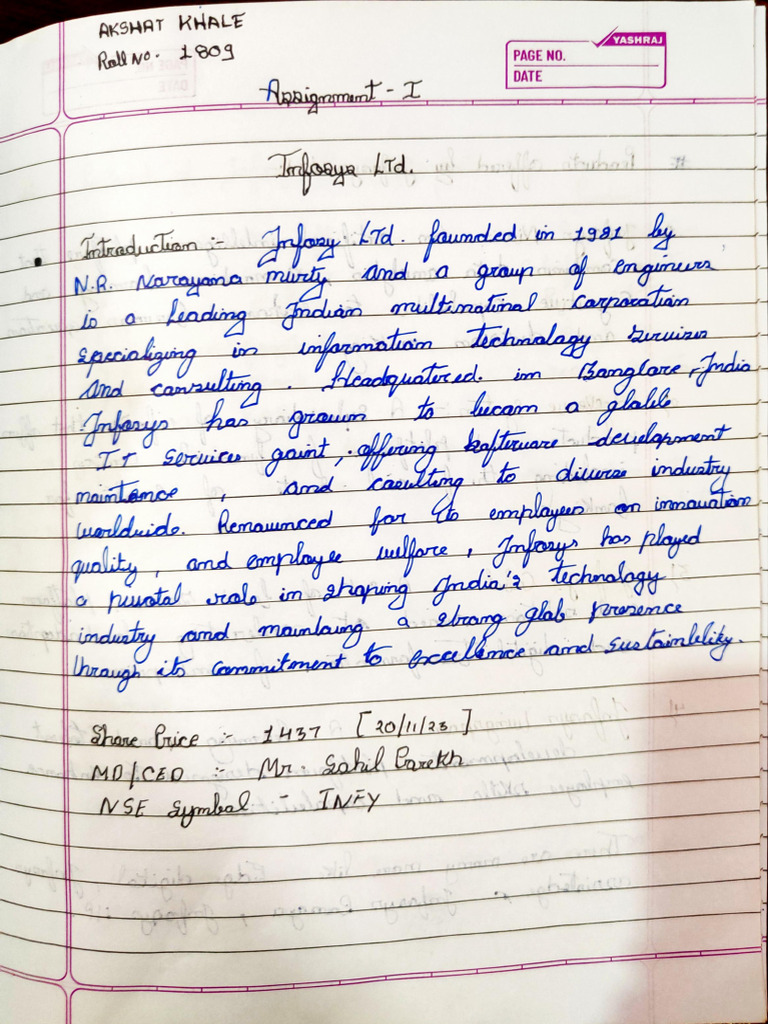 AKSHAT KHALE
Roll No. 1809
YASHRAJ
PAGE NO.
DATE
Assignment - I
Infosys LTD.
• Introduction :- Infosy LTD. founded in 1981 by
N.R. Narayana murty and a group of engineers
is a leading Indian multinatinal corporation
specializing in information technology services
and consulting. Headquatered in Banglare, India
Infosys has grown to becam a glable
IT services gaint, offering softerware development
maintance, and cosulting to diverse industry
worldwide. Renaunced for its employees on innovation
quality, and employee welfare, Infosys has played
a pivotal role in shaping India's technology
industry and maintaing a strong glab presence
through its commitment to excellence and sustainblity.
Share Price :- 1437 [20/11/23]
MD/CEO :- Mr. Sahil Parekh
NSE Symbol - INFY